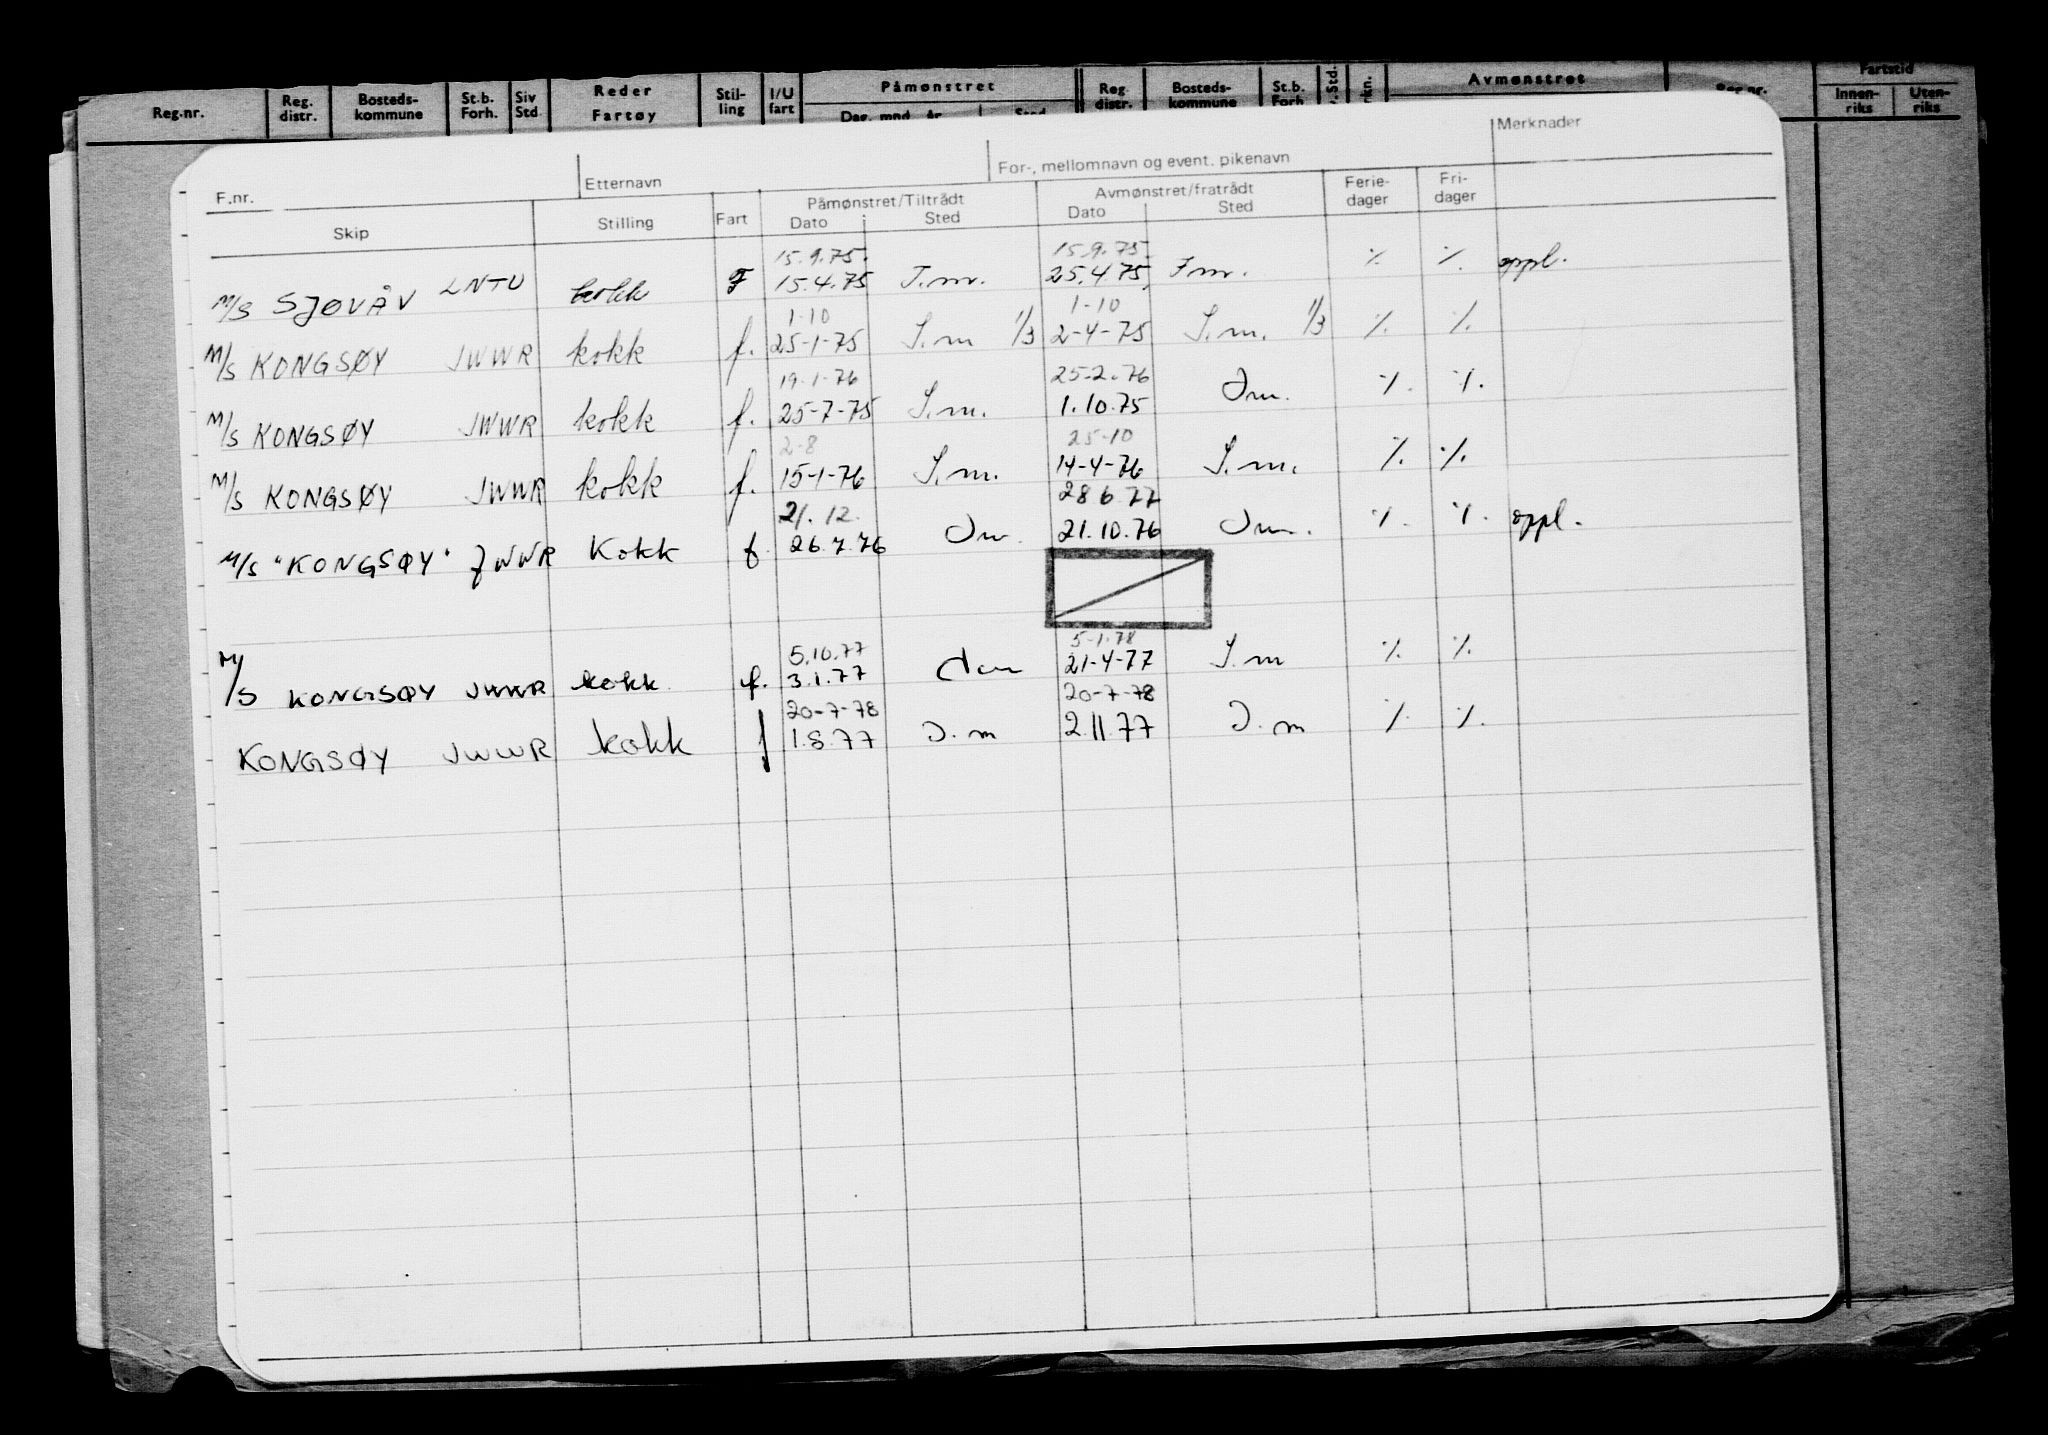 Reg.nr. Reg. distr. Bosteds- kommune St.b. Forh. Siv Std. Reder Fartøy Stil- ling I/U fart Påmønstret Reg distr. Bosteds- kommune St.b. Forh Avmønstret Fartstid Innen- riks Uten- riks
Dag, mnd. år Sted
F.nr. Etternavn For-, mellomnavn og event. pikenavn Merknader
Skip Stilling Fart Påmønstret/Tiltrådt Dato Sted Avmønstret/fratrådt Dato Sted Ferie- dager Fri- dager
15.9.75. 15.9.75.
M/S SJØVÅV LNTU kokk F 15.4.75 I.m. 25.4.75, I m. ./. ./. oppl.
1-10 1-10
M/S KONGSØY JWWR kokk f. 25-1-75 I.m 1/3 2-4-75 I.m. 1/3 ./. ./.
19.1.76 25.2.76
M/S KONGSØY JWWR kokk f. 25-7-75 I.m. 1.10.75 Im. ./. ./.
2-8 25-10
M/S KONGSØY JWWR kokk f. 15-1-76 I.m. 14-4-76 I.m. ./. ./.
21.12. 28 6.77
M/S "KONGSØY" JWWR Kokk f. 26.7.76 Im. 21.10.76 Im. ./. ./. oppl.
5.10.77 5-1.78
M/S KONGSØY JWWR kokk f. 3.1.77 21-4-77 I.m ./. ./.
20-7-78 20-7-78
KONGSØY JWWR kokk f 1.8.77 I.m 2.11.77 I.m ./. ./.